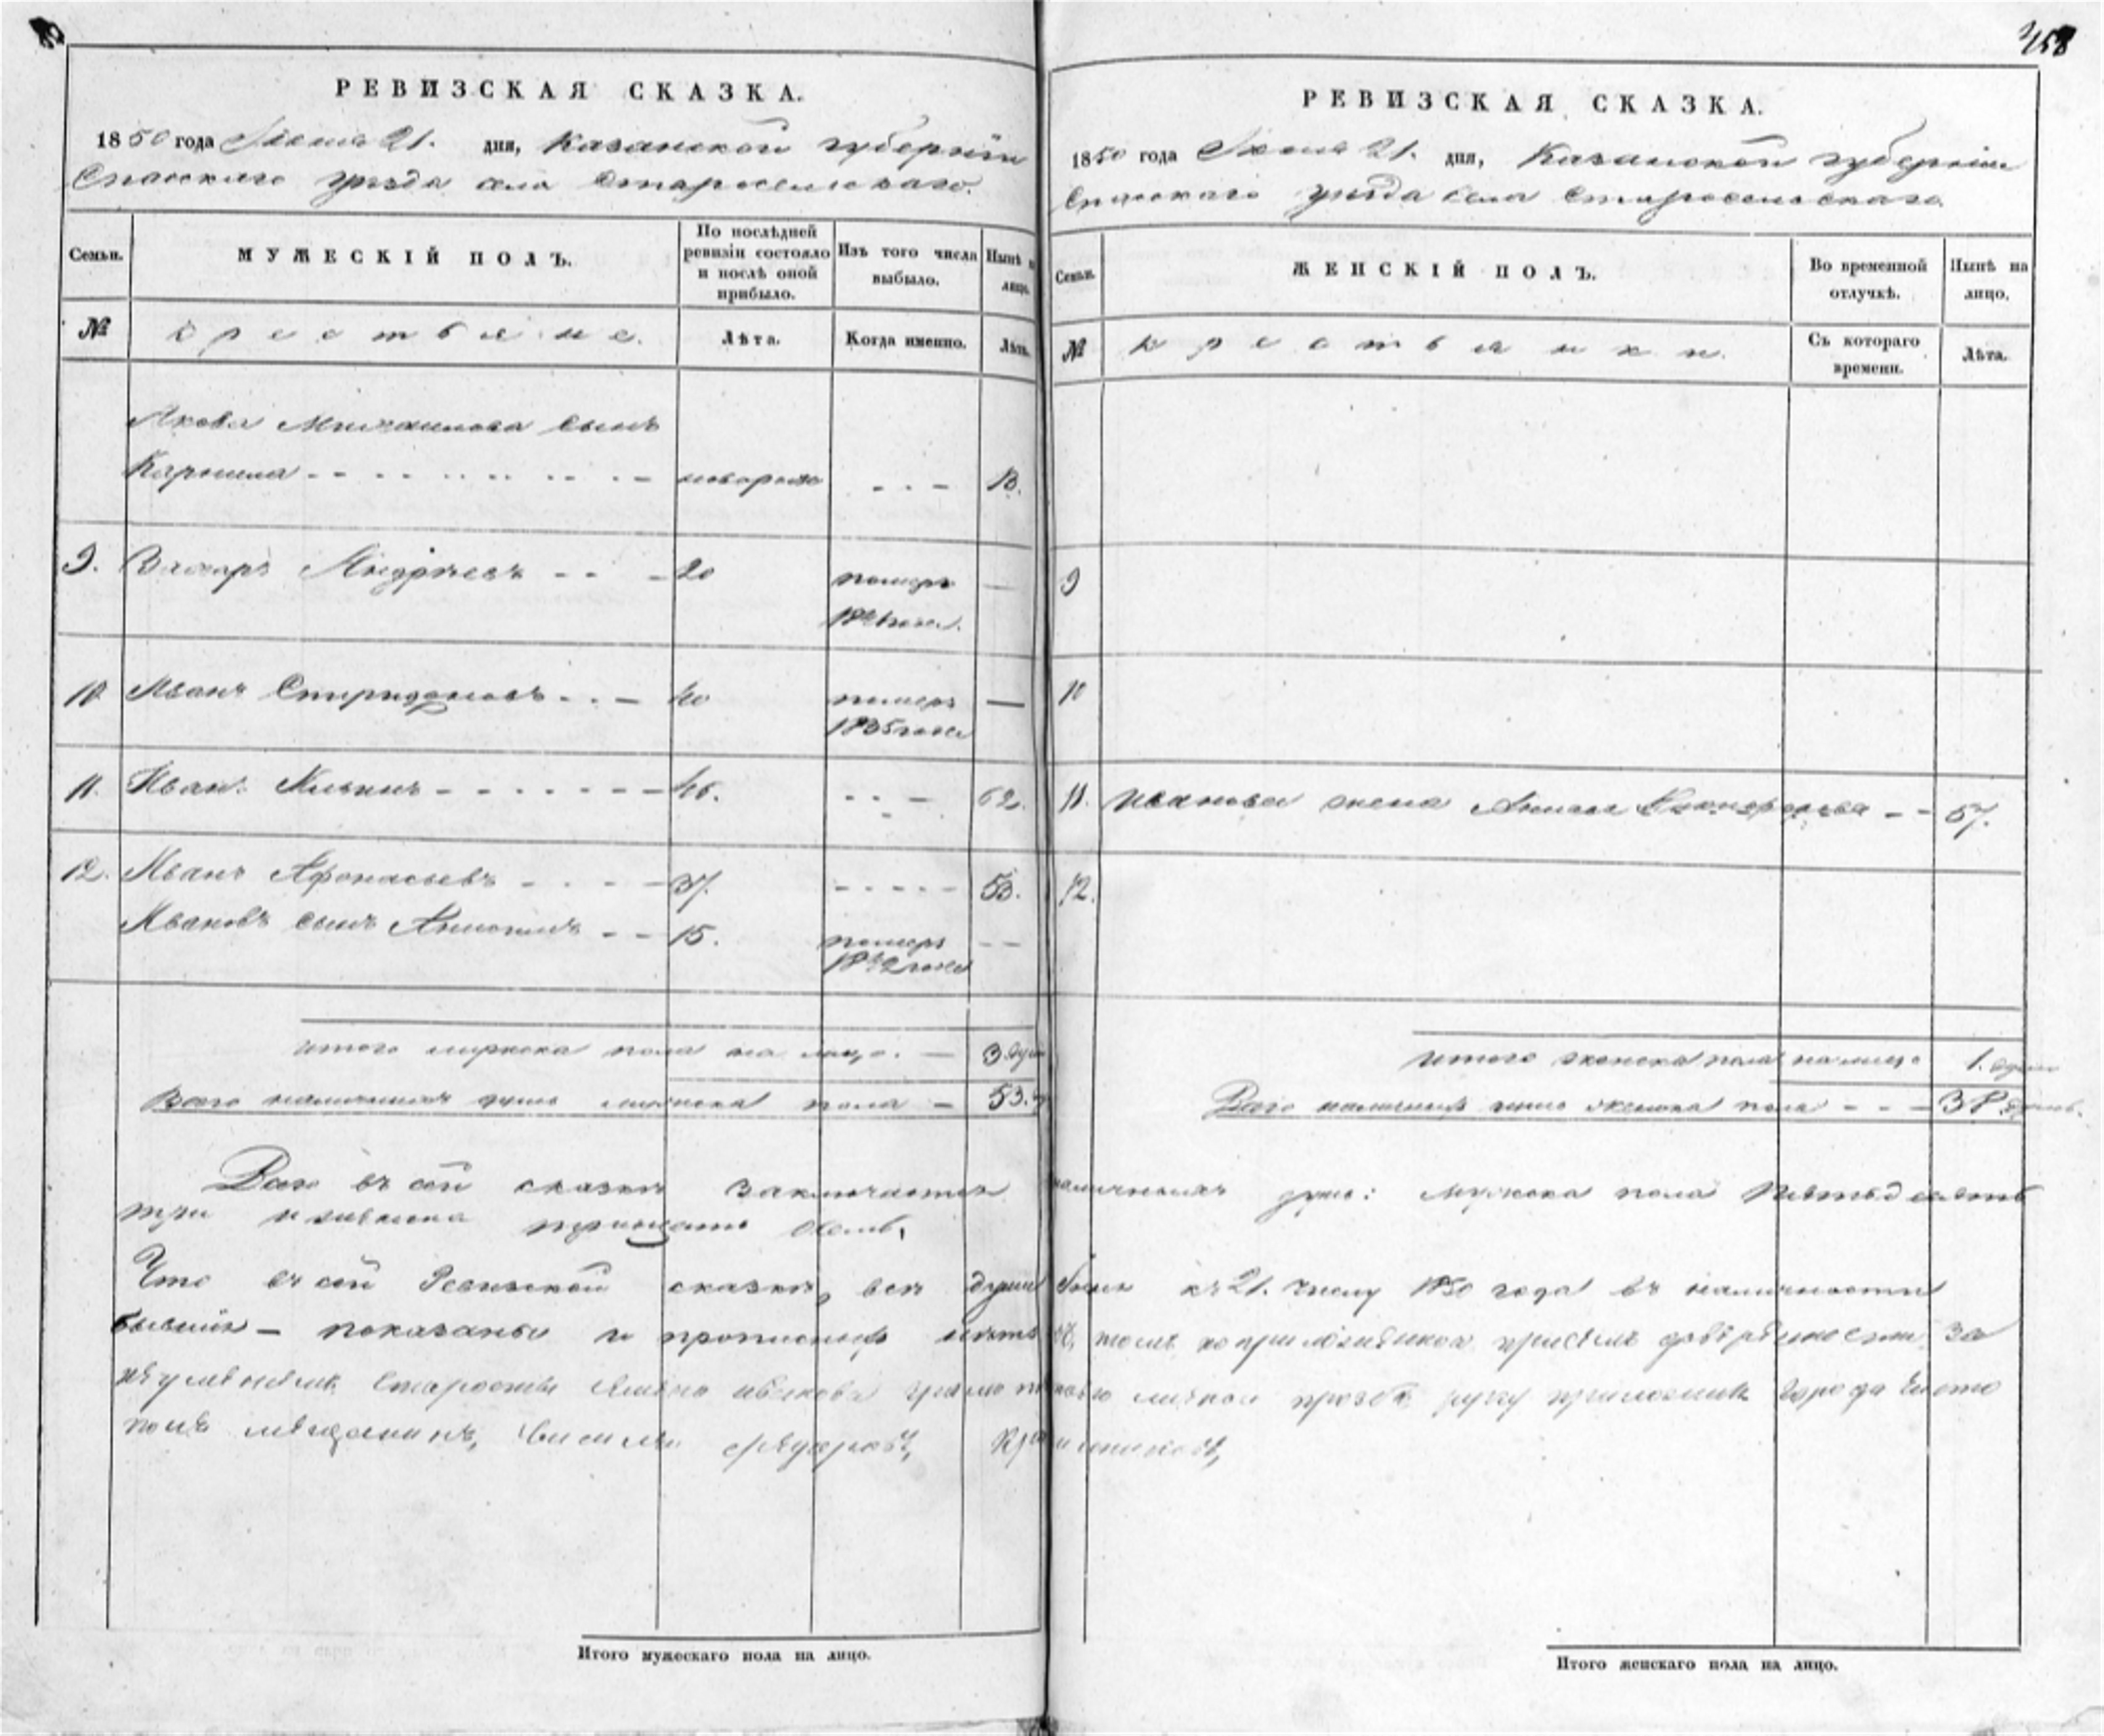 458
РЕВИЗСКАЯ СКАЗКА.
1850 года Июня 21. дня, Казанской губернiи
Спасскаго уезда села Старосельскаго.
Семьи.
МУЖЕСКIЙ ПОЛЪ.
По послѣдней ревизiи состояло и послѣ оной прибыло.
Изъ того числа выбыло.
Нынѣ на лицо.
№
крестьяне.
Лѣта.
Когда именно.
Лѣта.
Якова Михайлова сынъ
Карнила - - - новорож - - - 13.
9. Андреевъ - - - 20 померъ —
года.
10 Иванъ Спиридоновъ - - - 40 померъ —
1835 года
11. Иванъ - - - 46. - - - 62.
12. Иванъ Афонасьевъ - - - 37. - - - 53.
Ивановъ сынъ - - 15. померъ - -
1842 года
итого мужска пола на лицо. — 3 души
Всего наличныхъ душъ мужска пола — 53.
РЕВИЗСКАЯ СКАЗКА.
1850 года Июня 21. дня, Казанской губернiи
Спасскаго уезда села Старосельскаго.
Семьи.
ЖЕНСКIЙ ПОЛЪ.
Во временной отлучкѣ.
Нынѣ на лицо.
№
крестьянки.
Съ котораго времени.
Лѣта.
9
10
11. Иванова жена - - 57.
12.
итого женска пола на лицо 1. душа
Всего наличныхъ душъ женска пола - - — 38. душъ.
Всего въ сей сказке заключается наличныхъ душъ: Мужска пола пятьдесятъ
три и женска тридцать восемь.
Что въ сей Ревизской сказке, все души были къ 21. числу 1850 года въ наличности
бывшiя — показаны и прописныхъ нетъ въ томъ за
Старосты личной прозбе руку приложилъ города Чисто
поля мещанинъ,
Итого мужескаго пола на лицо.
Итого женскаго пола на лицо.